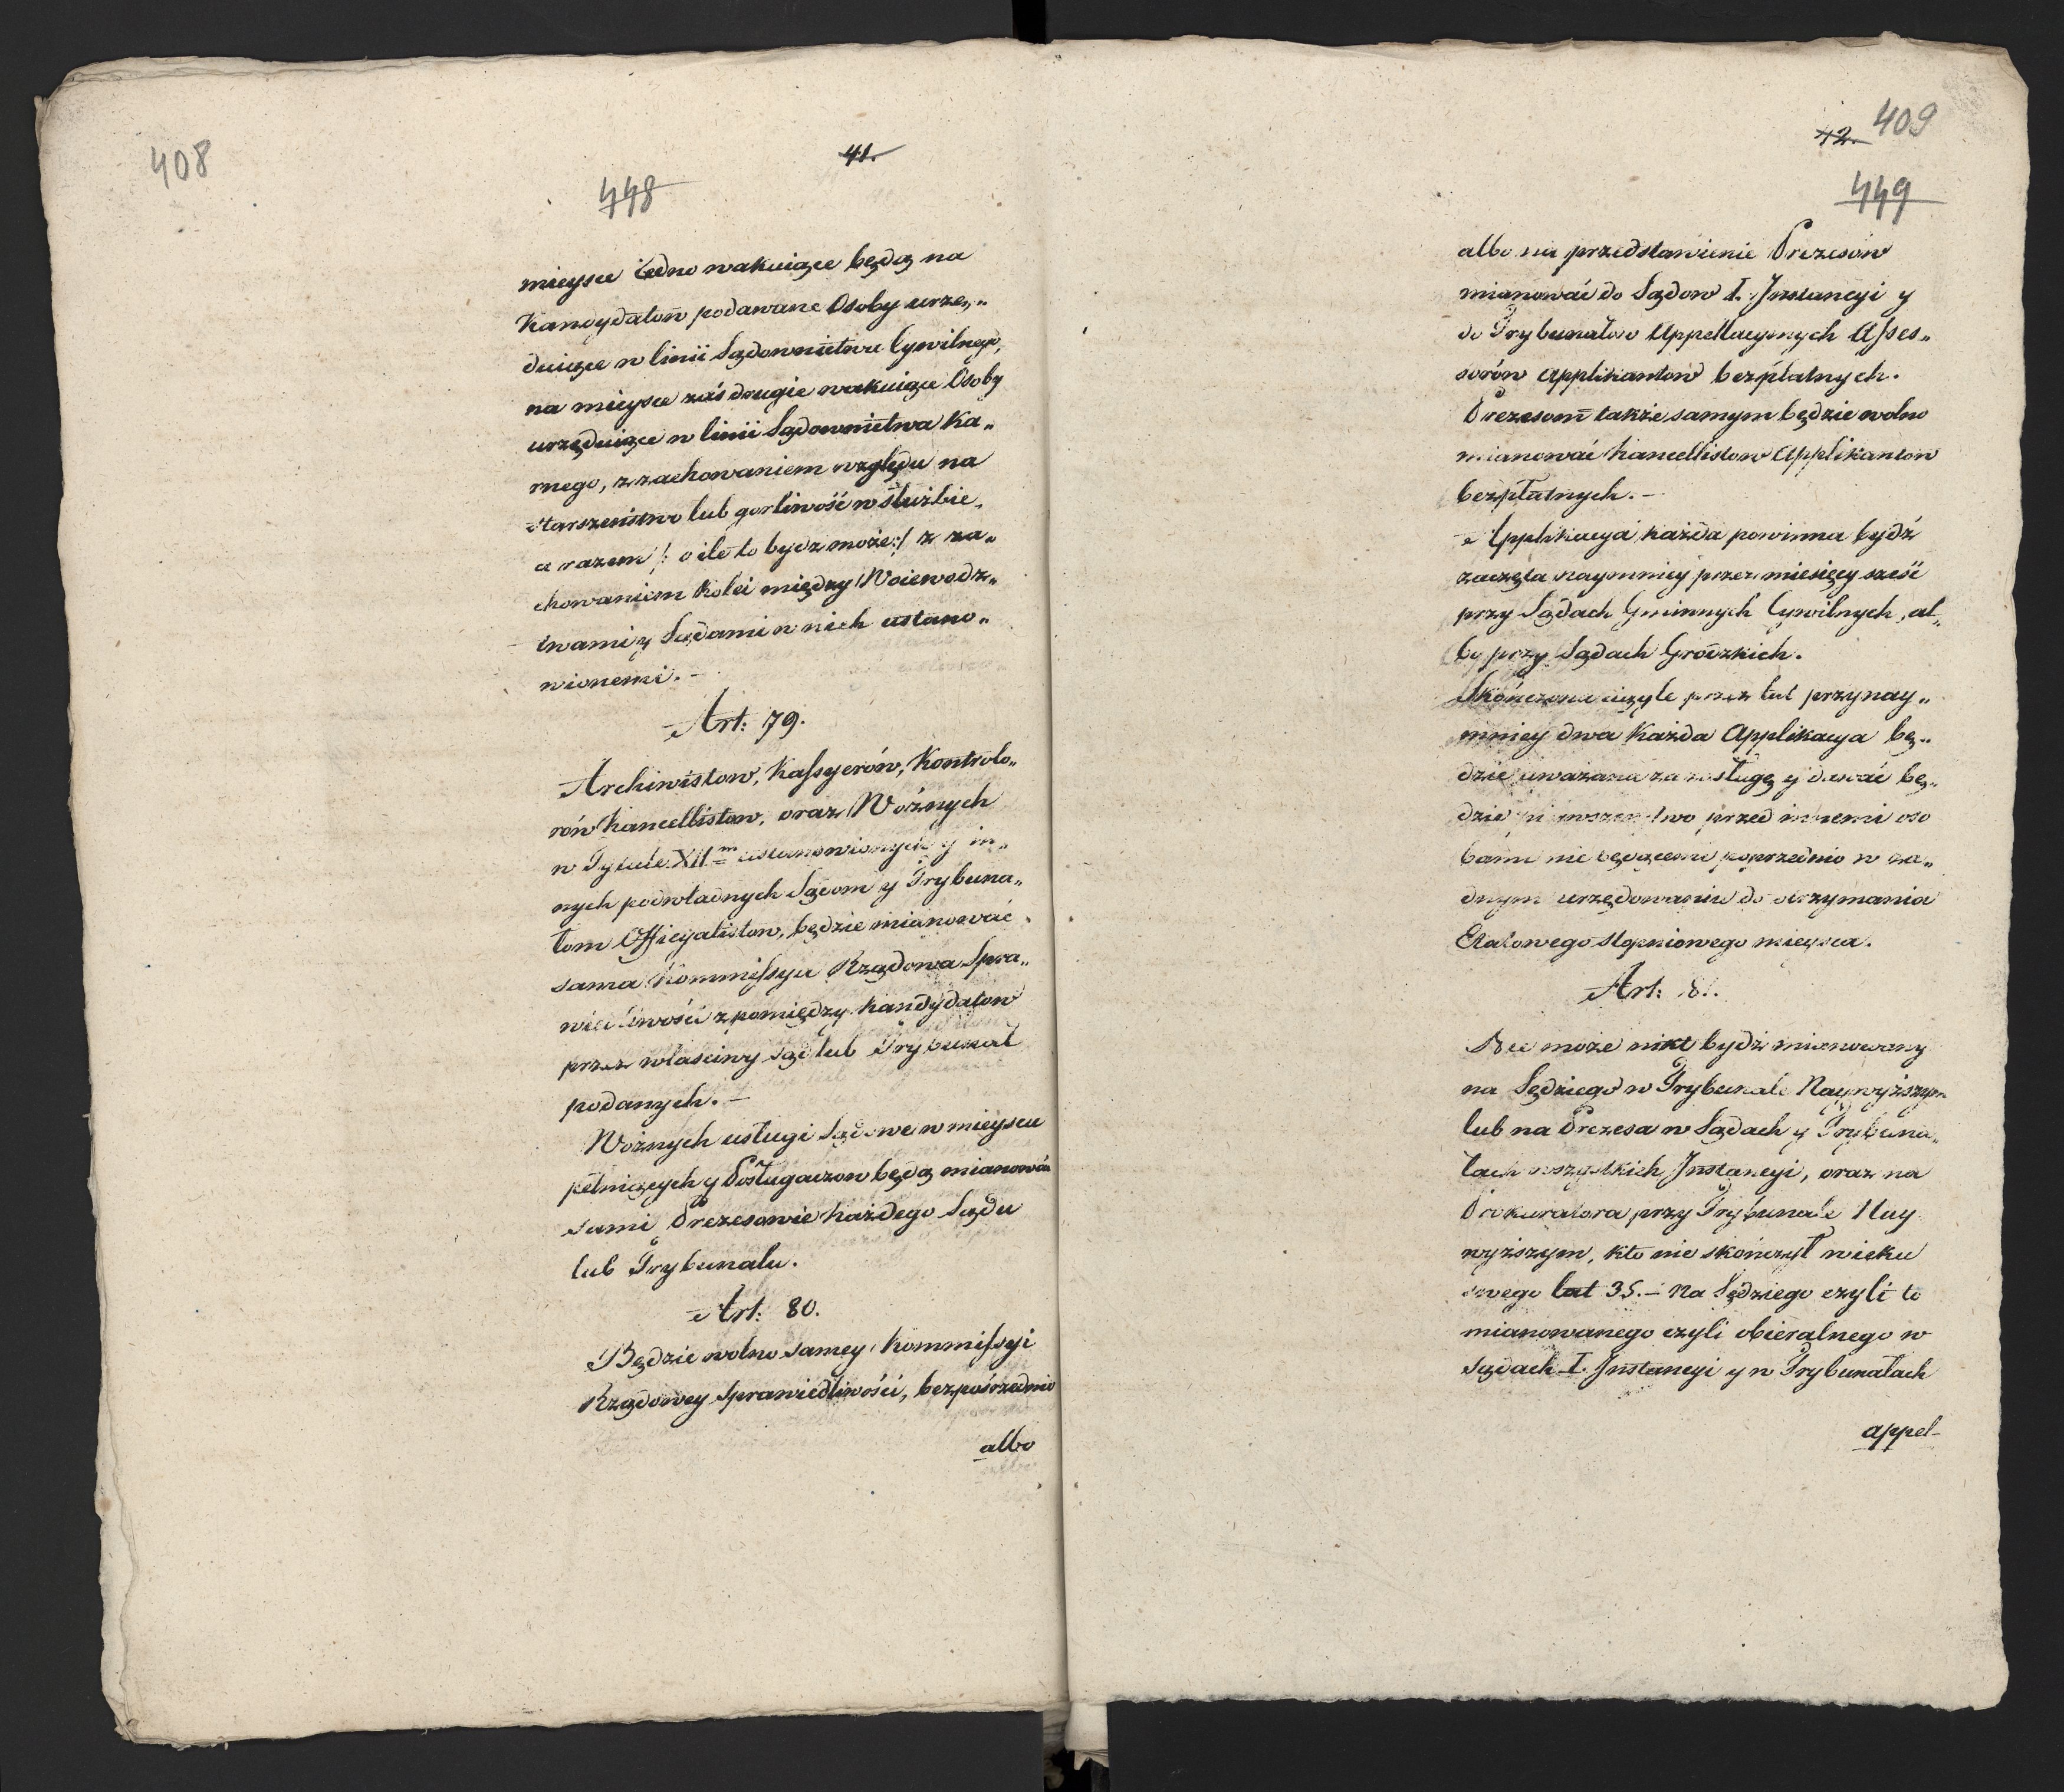 408
41.
448
mieysce iedno wakuiące będą na
Kandydatow podawane Osoby urzę„
duiące w linii Sądownictwa Cywilnego,
na mieysce zaś drugie wakuiące Osoby
urzęduiące w linii Sądownictwa Ka„
rnego, z zachowaniem względu na
starszeństwo lub gorliwość w służbie,
a razem /: o ile to bydz może :/ z za„
chowaniem kolei między Woiewodz„
twami y Sądami w nich ustano„
wionemi. –
Art: 79.
Archiwistow, Kassyerów, Kontrolo„
rów Kancellistow, oraz Woźnych
w Tytule XII.m ustanowionych y in„
nych podwładnych Sądom y Trybuna„
łom Officyalistow, będzie mianować
sama Kommissya Rządowa Spra„
wiedliwości z pomiędzy kandydatow
przez właściwy Sąd lub Trybunał
podanych. –
Woźnych usługi Sądowe w mieyscu
pełniących y Posługaczow będą mianować
sami Prezesowie każdego Sądu
lub Trybunału.
Art: 80.
Będzie wolno samey Kommissyi
Rządowey Sprawiedliwości, bezpośrednio
albo
42. 409
449
albo na przedstawienie Prezesów
mianować do Sądow I. Instancyi y
do Trybunałow Appellacyinych Asses„
sorów Applikantow bezpłatnych.
Prezesom także samym będzie wolno
mianować Kancellistow Applikantow
bezpłatnych. –
Applikacya każda powinna bydź
zaczęta naymniey przez miesięcy sześć
przy Sądach Gminnych Cywilnych, al„
bo przy Sądach Grodzkich.
Skończona ciągle przez lat przynay„
mniey dwa każda Applikacya bę„
dzie uważana za usługę y dawać bę„
dzie pierwszeństwo przed innemi oso
bami nie będącemi poprzednio w ża„
dnym urzędowaniu do otrzymania
Etatowego stopniowego mieysca.
Art: 81.
Nie może nikt bydź mianowany
na Sędziego w Trybunale Naywyższym
lub na Prezesa w Sądach y Trybuna„
łach wszystkich Instancyi, oraz na
Prokuratora przy Trybunale Nay
wyższym, kto nie skończył wieku
swego lat 35. – Na Sędziego czyli to
mianowanego czyli obieralnego w
Sądach I. Instancyi y w Trybunałach
appel-